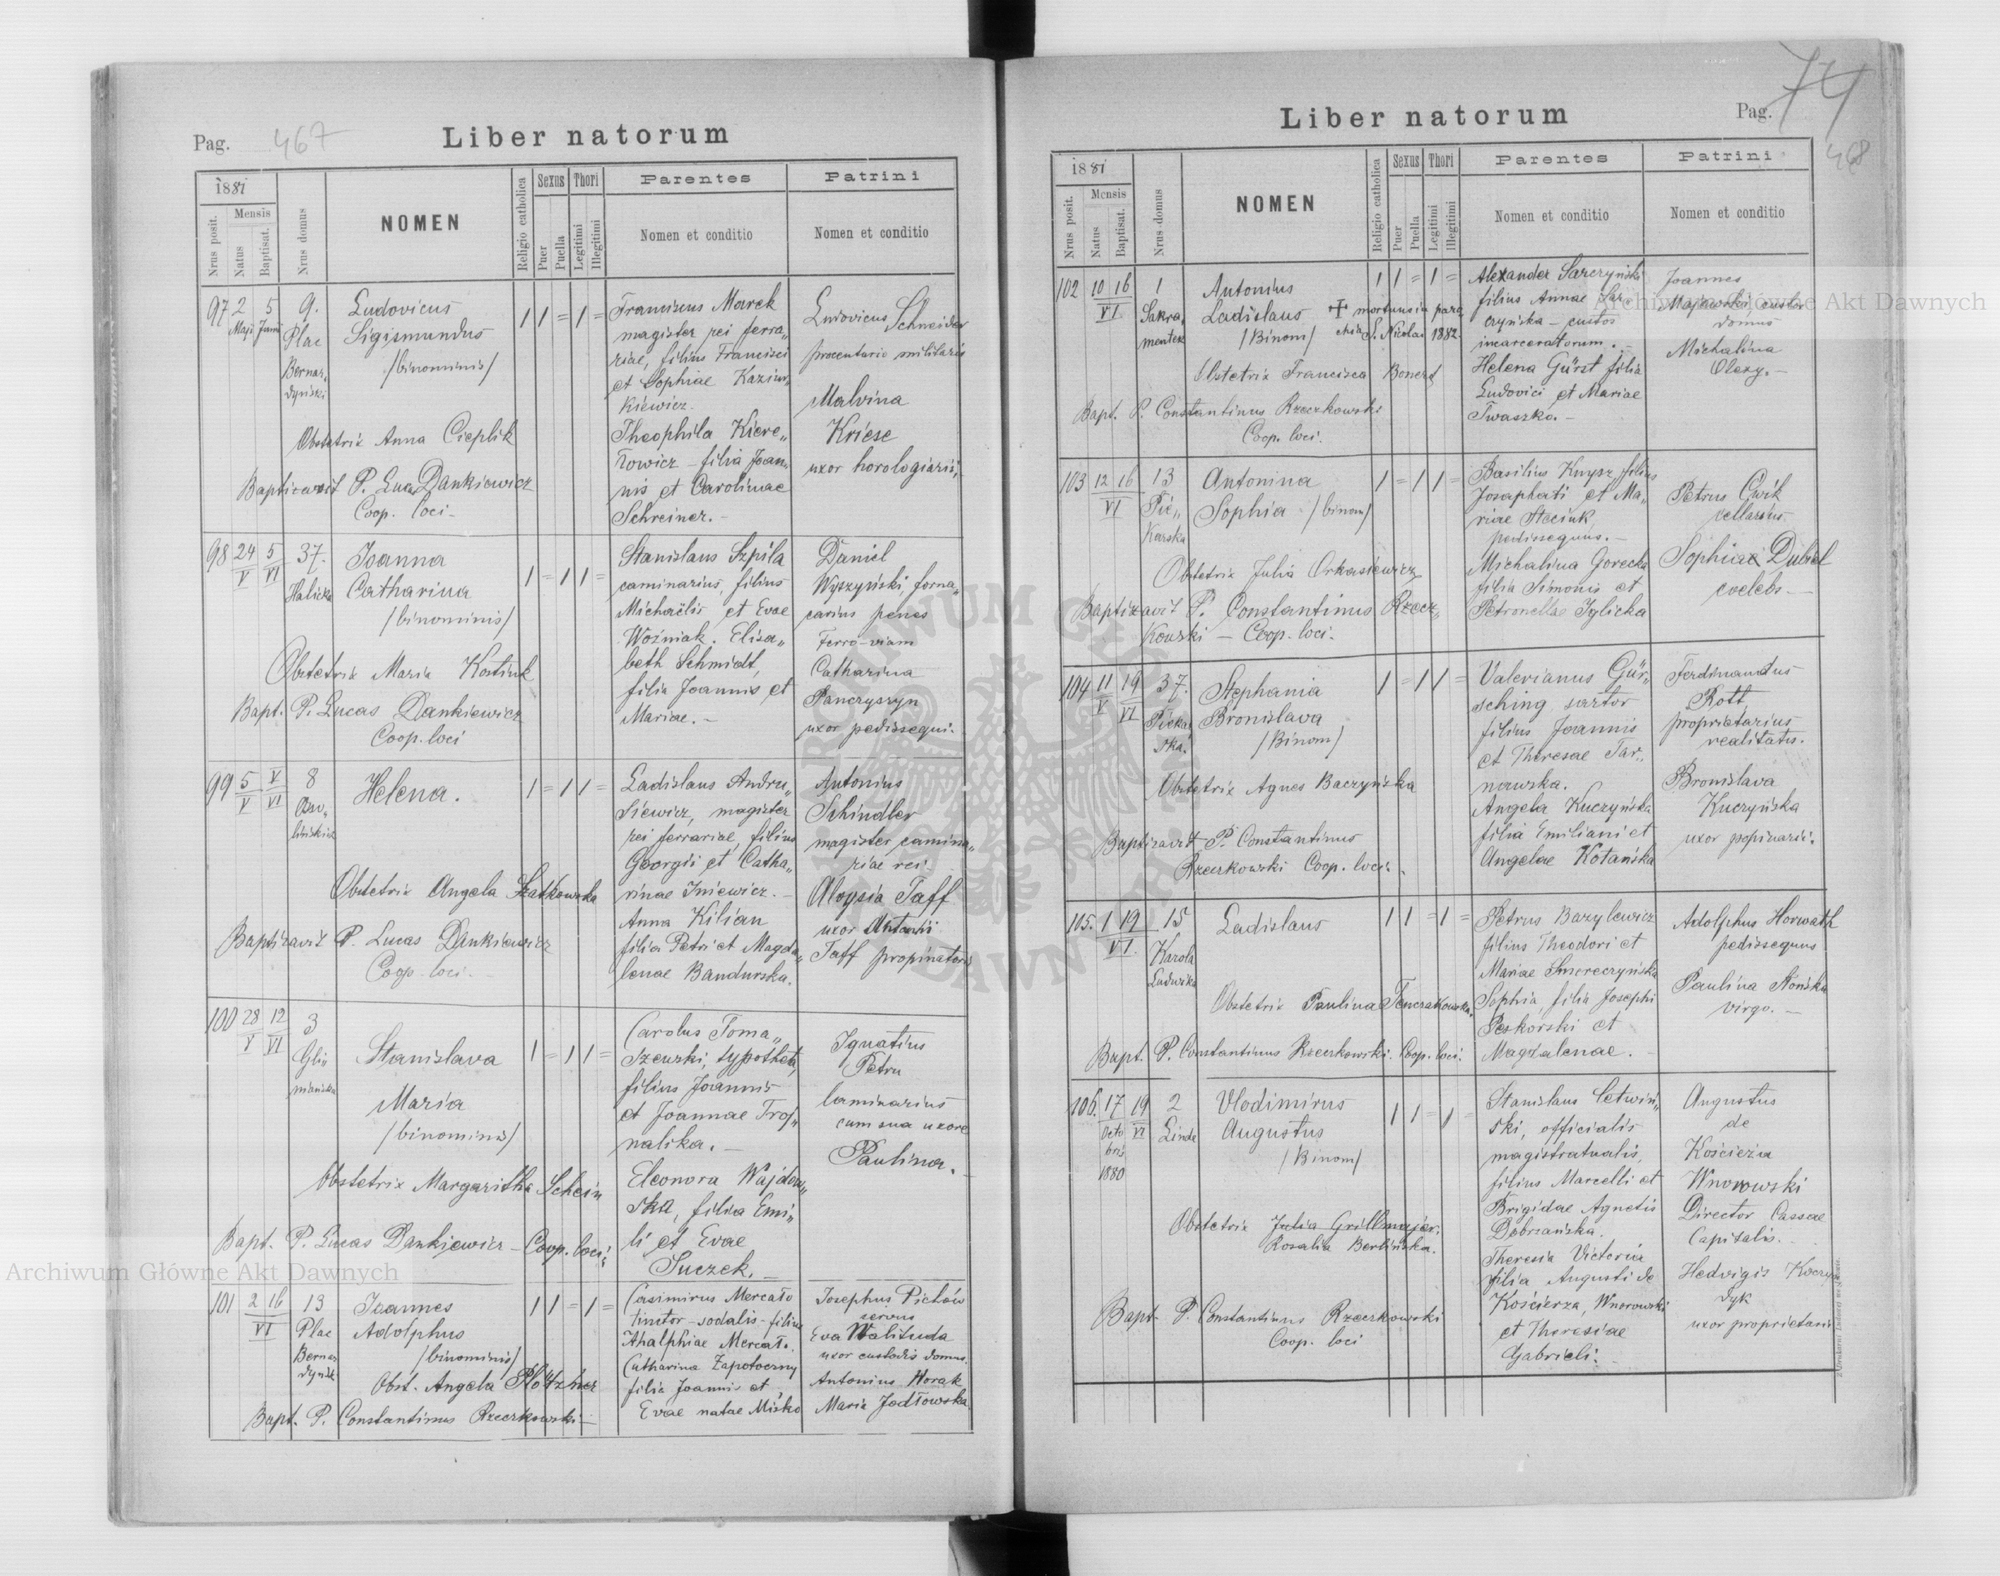 Pag. 467
Liber natorum
1881
Nrus posit.
Mensis
Natus
Baptisat.
Nrus domus
NOMEN
Religio catholica
Sexus
Puer
Puella
Thori
Legitimi
Illegitimi
Parentes
Nomen et conditio
Patrini
Nomen et conditio
97 2 Maji 5 Junii
9. Plac Bernar„
dyński
Ludovicus
Sigismundus
/binominis/
Obstetrix Anna Cieplik
Baptizavit P. Lucas Dankiewicz
Coop. loci
1 1 = 1 =
Franciscus Marek
magister rei ferra„
riae, filius Francisci
et Sophiae Kazim„
kiewicz.
Theophila Kiere„
towicz – filia Joan„
nis et Carolinae
Schreiner. –
Ludovicus Schneider
militaris
Malvina
Kriese
uxor horologiarii
98 24 V 5 VI
37.
Halicka
Joanna
Catharina
/binominis/
Obstetrix Maria Kostiuk
Bapt. P. Lucas Dankiewicz
Coop. loci
1 = 1 1 =
Stanislaus Szpila
caminarius, filius
Michaëlis et Evae
Woźniak. Elisa„
beth Schmidt,
filia Joannis et
Mariae. –
Daniel
Wyszyński, forna„
carius penes
Ferro-viam
Catharina
Pancryszyn
uxor pedissequi.
99 5 V V VI
8
Helena.
Obstetrix Angela Szatkowska
Baptizavit P. Lucas Dankiewicz
Coop. loci. –
1 = 1 1 =
Ladislaus Andru„
siewicz, magister
rei ferrariae, filius
Georgii et Catha„
rinae Iniewicz. –
Anna Kilian
filia Petri et Magda„
lenae Bandurska.
Antonius
Schindler
magister camina„
riae rei.
Aloysia Taff
uxor Antonii
Taff propinatoris
100 28 V 12 VI
3
Gli„
niańska
Stanislava
Maria
/binominis/
Obstetrix Margaritha Schein
Bapt. P. Lucas Dankiewicz – Coop. loci.
1 = 1 1 =
Carolus Toma„
szewski, typotheta,
filius Joannis
et Joannae Troj„
nalska. –
Eleonora Wajdow„
ska, filia Emi„
li et Evae
Suczek. –
Ignatius
Petru
laminarius
cum sua uxore
Paulina. –
101 2 16 VI
13
Plac
Bernar
dyński
Joannes
Adolphus
/binominis/
Obst. Angela Płotzher
Bapt. P. Constantinus Rzeczkowski –
1 1 = 1 =
Casimirus Mercato
tinctor-sodalis-filius
Athalphiae Mercato.
Catharina Zapotoczny
filia Joannis et
Evae natae Misko
Josephus Pichów
servus
Eva Walituda
uxor custodis domus.
Antonius Horak
Maria Jodłowska
Liber natorum
Pag. 74
468
1881
Nrus posit.
Mensis
Natus
Baptisat.
Nrus domus
NOMEN
Religio catholica
Sexus
Puer
Puella
Thori
Legitimi
Illegitimi
Parentes
Nomen et conditio
Patrini
Nomen et conditio
102 10 16 VI
1
Sakra„
mentek
Antonius
Ladislaus
/Binom/
✝ mortuus in paro
chia S. Nicolai 1882.
Obstetrix Francisca Bonert
Bapt. P. Constantinus Rzeczkowski
Coop. loci.
1 1 = 1 =
Alexander Sarczyński
filius Annae Sar„
czyńska – custos
incarceratorum. –
Helena Gürst filia
Ludovici et Mariae
Iwaszko. –
Joannes
Majewski, custos
domus
Michalina
Olexy. –
103 12 16 VI
13
Pie„
karska
Antonina
Sophia /binom/
Obstetrix Julia Orkasiewicz
Baptizavit P. Constantinus Rzecz„
kowski – Coop. loci.
1 = 1 1 =
Basilius Knysz filius
Josaphati et Ma„
riae Steciuk,
pedissequus. –
Michalina Gorecka
filia Simonis et
Petronellae Iglicka
Petrus Ćwik
cellarius
Sophia Dubiel
coelebs. –
104 11 V 19 VI
37.
Piekar
ska.
Stephania
Bronislava
/Binom/
Obstetrix Agnes Baczyńska
Baptizavit P. Constantinus
Rzeczkowski Coop. loci.
1 = 1 1 =
Valerianus Gür„
sching sartor
filius Joannis
et Theresae Tar„
nawska.
Angela Kuczyńska
filia Emiliani et
Angelae Kotańska
Ferdinandus
Rott,
proprietarius
realitatis.
Bronislava
Kuczyńska
uxor popinarii.
105. 1 19 VI.
15
Karola
Ludwika
Ladislaus
Obstetrix Paulina Tenczakowska.
Bapt. P. Constantinus Rzeczkowski. Coop. loci.
1 1 = 1 =
Petrus Bazylewicz
filius Theodori et
Mariae Smereczyńska
Sophia filia Josephi
Peskorski et
Magdalenae. –
Adolphus Horwath
pedissequus
Paulina Nońska
virgo. –
106. 17 Octo
bris
1880
19 VI
2
Linde
Vlodimirus
Augustus
/Binom/
Obstetrix Julia Grillmajer.
Rosalia Berlińska.
Bapt. P. Constantinus Rzeczkowski
Coop. loci
1 1 = 1 =
Stanislaus Cetwiń„
ski, officialis
magistratualis,
filius Marcelli et
Brigidae Agnetis
Dobrzańska.
Theresia Victoria
filia Augusti de
Kościerza, Wnorowski
et Theresiae
Gabrieli. –
Augustus
de
Kościeża
Wnorowski
Director Cassae
Capitalis.
Hedvigis Koczyn
dyk
uxor proprietarii
Archiwum Główne Akt Dawnych
Archiwum Główne Akt Dawnych